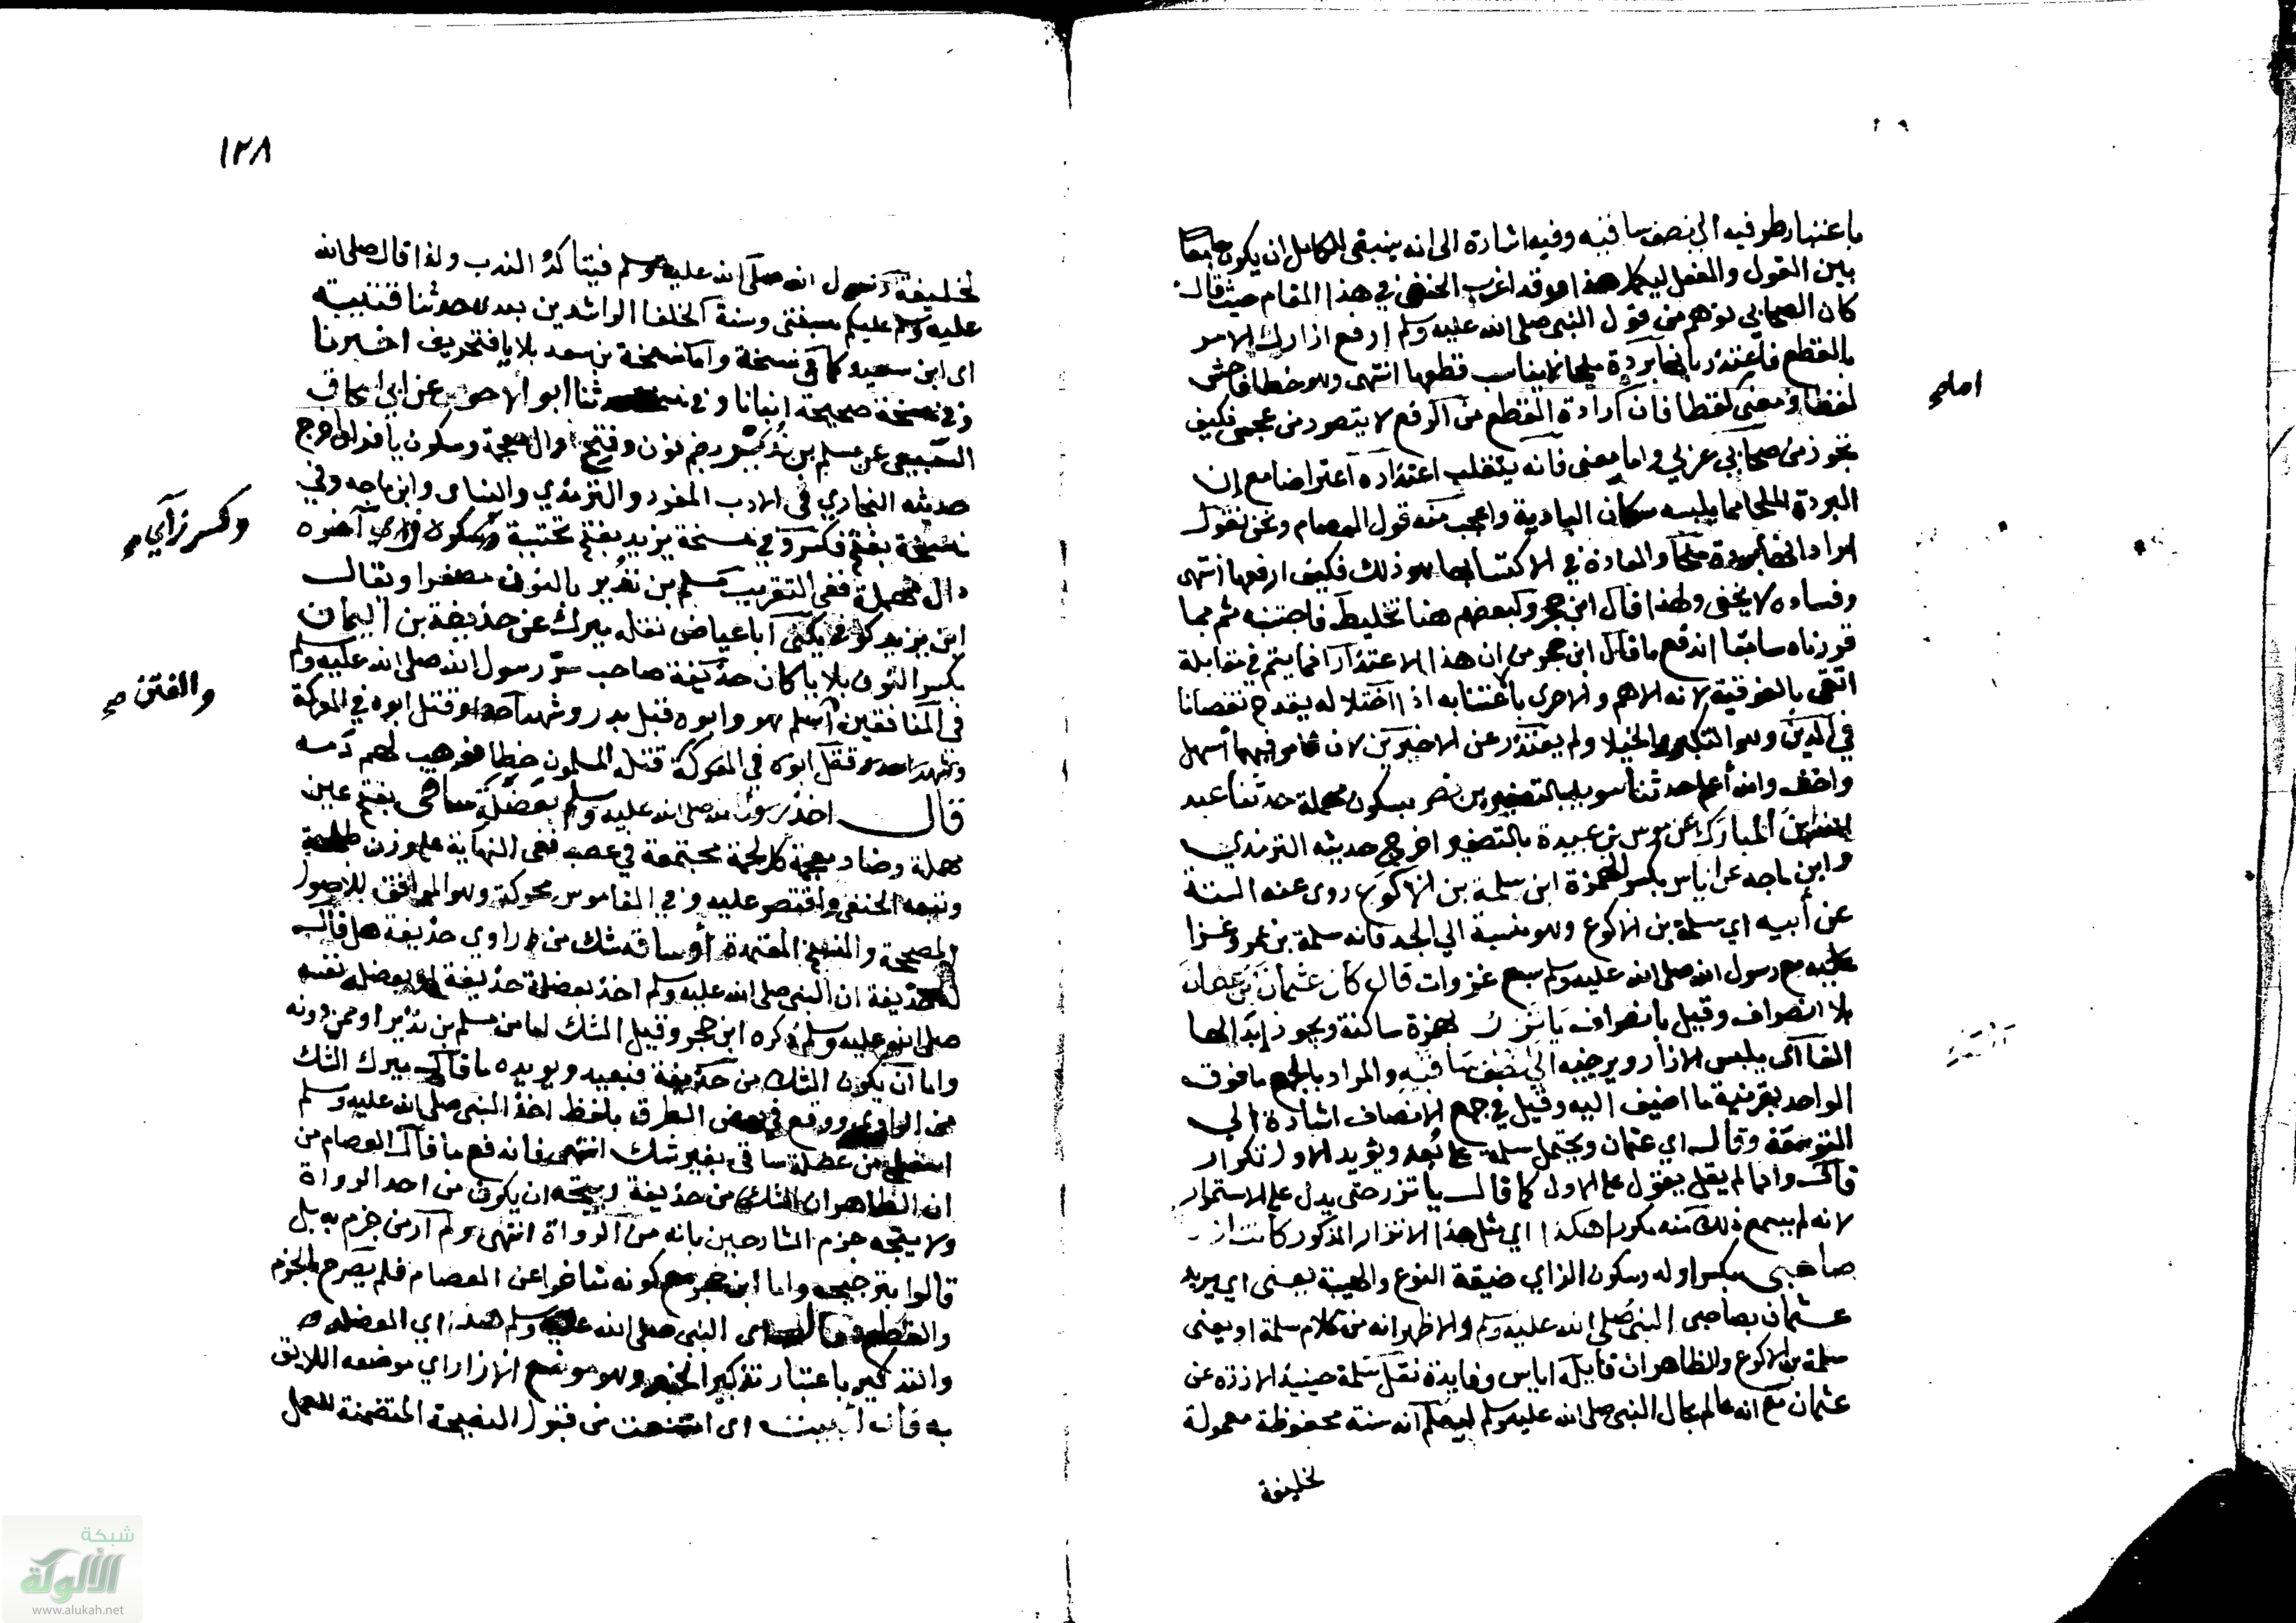 باعتبار طرفيه الي نصف ساقيه وفيه اشارة الى انه ينبغي للكامل ان يكون جامعا
بين القول والفعل ليكمل هذا وقد اغرب الحنفي في هذا المقام حيث قال
كان الصحابي توهم من قول النبي صلى الله عليه وسلم ارفع ازارك الامر
بالقطع فاعتذر بانها بردة ملحا لا يناسب قطعها انتهى وهو خطا فاحش
لفظا ومعنى لفظا فان ارادة القطع من الرفع لا يتصور من عجمي فكيف
اصلح
نجوز من صحابي عربي واما معنى فانه ينقلب اعتذاره اعتراضا مع ان
البردة الملحا مما يلبسه سكان البادية واعجب منه قول العصام ونحن نقول
اراد انها بردة ملحا والعادة في الاكتساء بها هو ذلك فكيف ارفعها انتهى
وفساده لا يخفى ولهذا قال ابن حجر وبعضهم هنا تخليط فاجتنبه ثم بما
قررناه سابقا اندفع ما قال ابن حجر من ان هذا الاعتذار انما يتم في مقابلة
اتقى بالفوقية لانه الاهم والاحرى بالاعتناء به اذ اختلاله يقدح نقصانا
في الدين وهو التكبر والخيلا ولم يعتذر عن الاخيرين لان الامر فيهما اسهل
واخف والله أعلم حدثنا سويد بالتصغير بن نصر بسكون مهملة حدثنا عبد
الله بن المبارك عن موسى بن عبيدة بالتصغير اخرج حديثه الترمذي
وابن ماجه عن اياس بكسر الهمزة ابن سلمة بن الاكوع روى عنه الستة
عن أبيه اي سلمة بن الاكوع وهو منسبة الي الجد فانه سلمة بن عمرو غزا
مع رسول الله صلى الله عليه وسلم سبع غزوات قال كان عثمان بن عفان
بلا انصراف وقيل بانصراف ياتزر لهمزة ساكنة ويجوز إبدالها
الفا اى يلبس الازار ويرخيه الى نصف ساقيه والمراد بالجمع ما فوق
الواحد بقرينة ما اضيف اليه وقيل في جمع الانصاف اشارة الى
التوسعة وقال اي عثمان ويحتمل سلمة على بُعد ويؤيد الاول تكرار
قال وانما لم يقل يقول على الاول كما قال ياتزر حتى يدل على الاستمرار
لانه لم يسمع ذلك منه مكررا هكذا اي مثل هذا الاتزار المذكور كانت ازرة
صاحبي بكسر اوله وسكون الزاي صيغة النوع والهيئة يعنى اي يريد
عثمان بصاحبي النبي صلى الله عليه وسلم والاظهر انه من كلام سلمة او يعني
سلمة بن الاكوع والظاهر ان قايله اياس وفايدة نقل سلمة حينيذ الازرة عن
عثمان مع انه عالم بحال النبي صلى الله عليه وسلم ليعلم انه سنة محفوظة معمولة
لخليفة
١٢٨
لخليفة رسول الله صلى الله عليه وسلم فيتاكد الندب ولذا قال صلى الله
عليه وسلم عليكم بسنتي وسنة الخلفا الراشدين بعدي حدثنا قتيبة
اى ابن سعيد كما في نسخة واما نسخة بن سعد بلا يا فتحريف اخبرنا
وفي نسخة صحيحة انبانا وفي نسخة حدثنا ابو الاحوص عن ابي اسحاق
السبيعي عن مسلم بن نذير بضم نون وفتح ذال معجمة وسكون يا فراء اخرج
حديثه البخاري في الادب المفرد والترمذي والنسائ وابن ماجه وفي
نسخة بفتح فكسر وفي نسخة يزيد بفتح تحتية وسكون آخره
وكسر زآي صح
دال مهملة ففي التقريب مسلم بن نذير بالنون مصغرا ويقال
ابن يزيد كوفي يكنى أبا عياض نقله ميرك عن حذيفة بن اليمان
بكسر النون بلا يا كان حذيفة صاحب سر رسول الله صلى الله عليه وسلم
والفتن صح
في المنافقين أسلم هو وابوه قبل بدر وشهدا احدا وقتل ابوه في المعركة
وشهد احدا وقتل ابوه في المعركة قتله المسلمون خطا فوهب لهم دمه
قال اخذ رسول الله صلى الله عليه وسلم بعضلة ساقي بفتح عين
مهملة وضاد معجمة كل لحمة مجتمعة في عصب ففي النهاية على وزن طلحة
وتبعه الحنفي واقتصر عليه وفي القاموس محركة وهو الموافق للاصول
المصححة والنسخ المعتمدة أو ساقه شك من راوي حذيفة هل قال
حذيفة ان النبي صلى الله عليه وسلم اخذ بعضلة حذيفة او بعضلة نفسه
صلى الله عليه وسلم ذكره ابن حجر وقيل الشك اما من مسلم بن نذير او ممن دونه
واما ان يكون الشك من حذيفة فبعيد ويويده ما قال ميرك الشك
من الراوي ووقع في بعض الطرق بلفظ اخذ النبي صلى الله عليه وسلم
اسفل من عضلة ساقي بغير شك انتهى فاندفع ما قال العصام من
ان الظاهر ان الشك من حذيفة ويتجه ان يكون من احد الرواة
ولا يتجه جزم الشارحين بانه من الرواة انتهى ولم ار من جزم به بل
قالوا بترجيحه واما ابن حجر مع كونه متاخرا عن العصام فلم يصرح بالجزم
والقطع وقال اى النبي صلى الله عليه وسلم هذا اي العضلة
والتذكير باعتبار تذكير الخبر وهو موضع الازار اي موضعه اللايق
به فان أبيت اى امتنعت من قبول النصيحة المتضمنة للعمل
شبكة
الألوكة
www.alukah.net